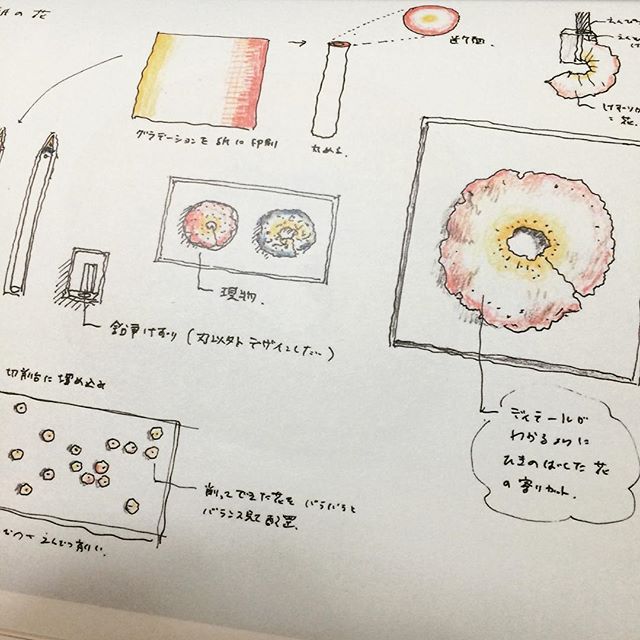 の花
グラデーションを 紙に印刷
丸める.
断面.
えんぴつ
けずりカ
= 花.
現物.
鉛筆けずり (刃以外 デザインしたい)
切削台に 埋め込み
削ってできた花を バラバラと
バランス見て 配置.
えんぴつ削り.
ディテールが
わかるように
ひきのばした 花
の寄りカット.